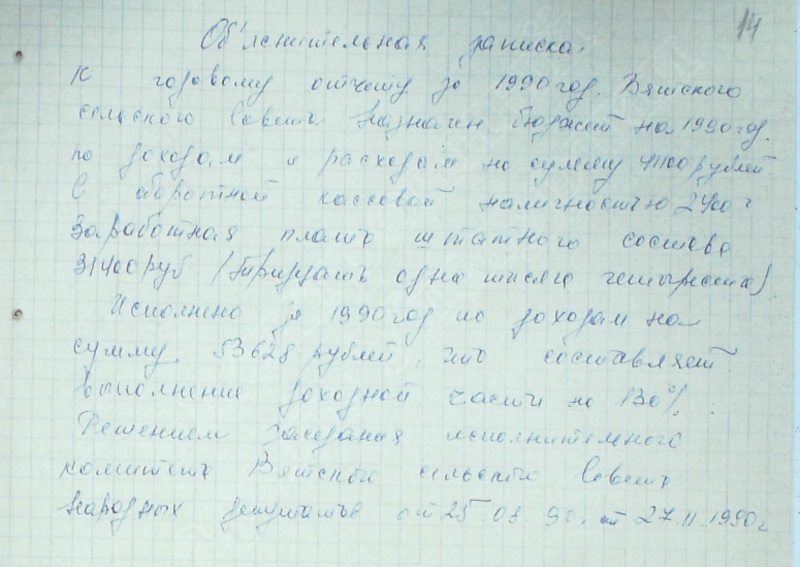 14
Об'яснительная записка.
К годовому отчету за 1990 год. Вятского
сельского Совета назначен бюджет на 1990 год.
по доходам и расходам на сумму 41100 рублей.
С оборотной кассовой наличностью 2400 г
Заработная плата штатного состава
31400 руб (тридцать одна тысяча четыреста)
Исполнено за 1990 год по доходам на
сумму 53628 рублей, что составляет
выполнение доходной части на 130%.
Решением заседания исполнительного
комитета Вятского сельского Совета
народных депутатов от 25.08.90. от 27.11.1990 г